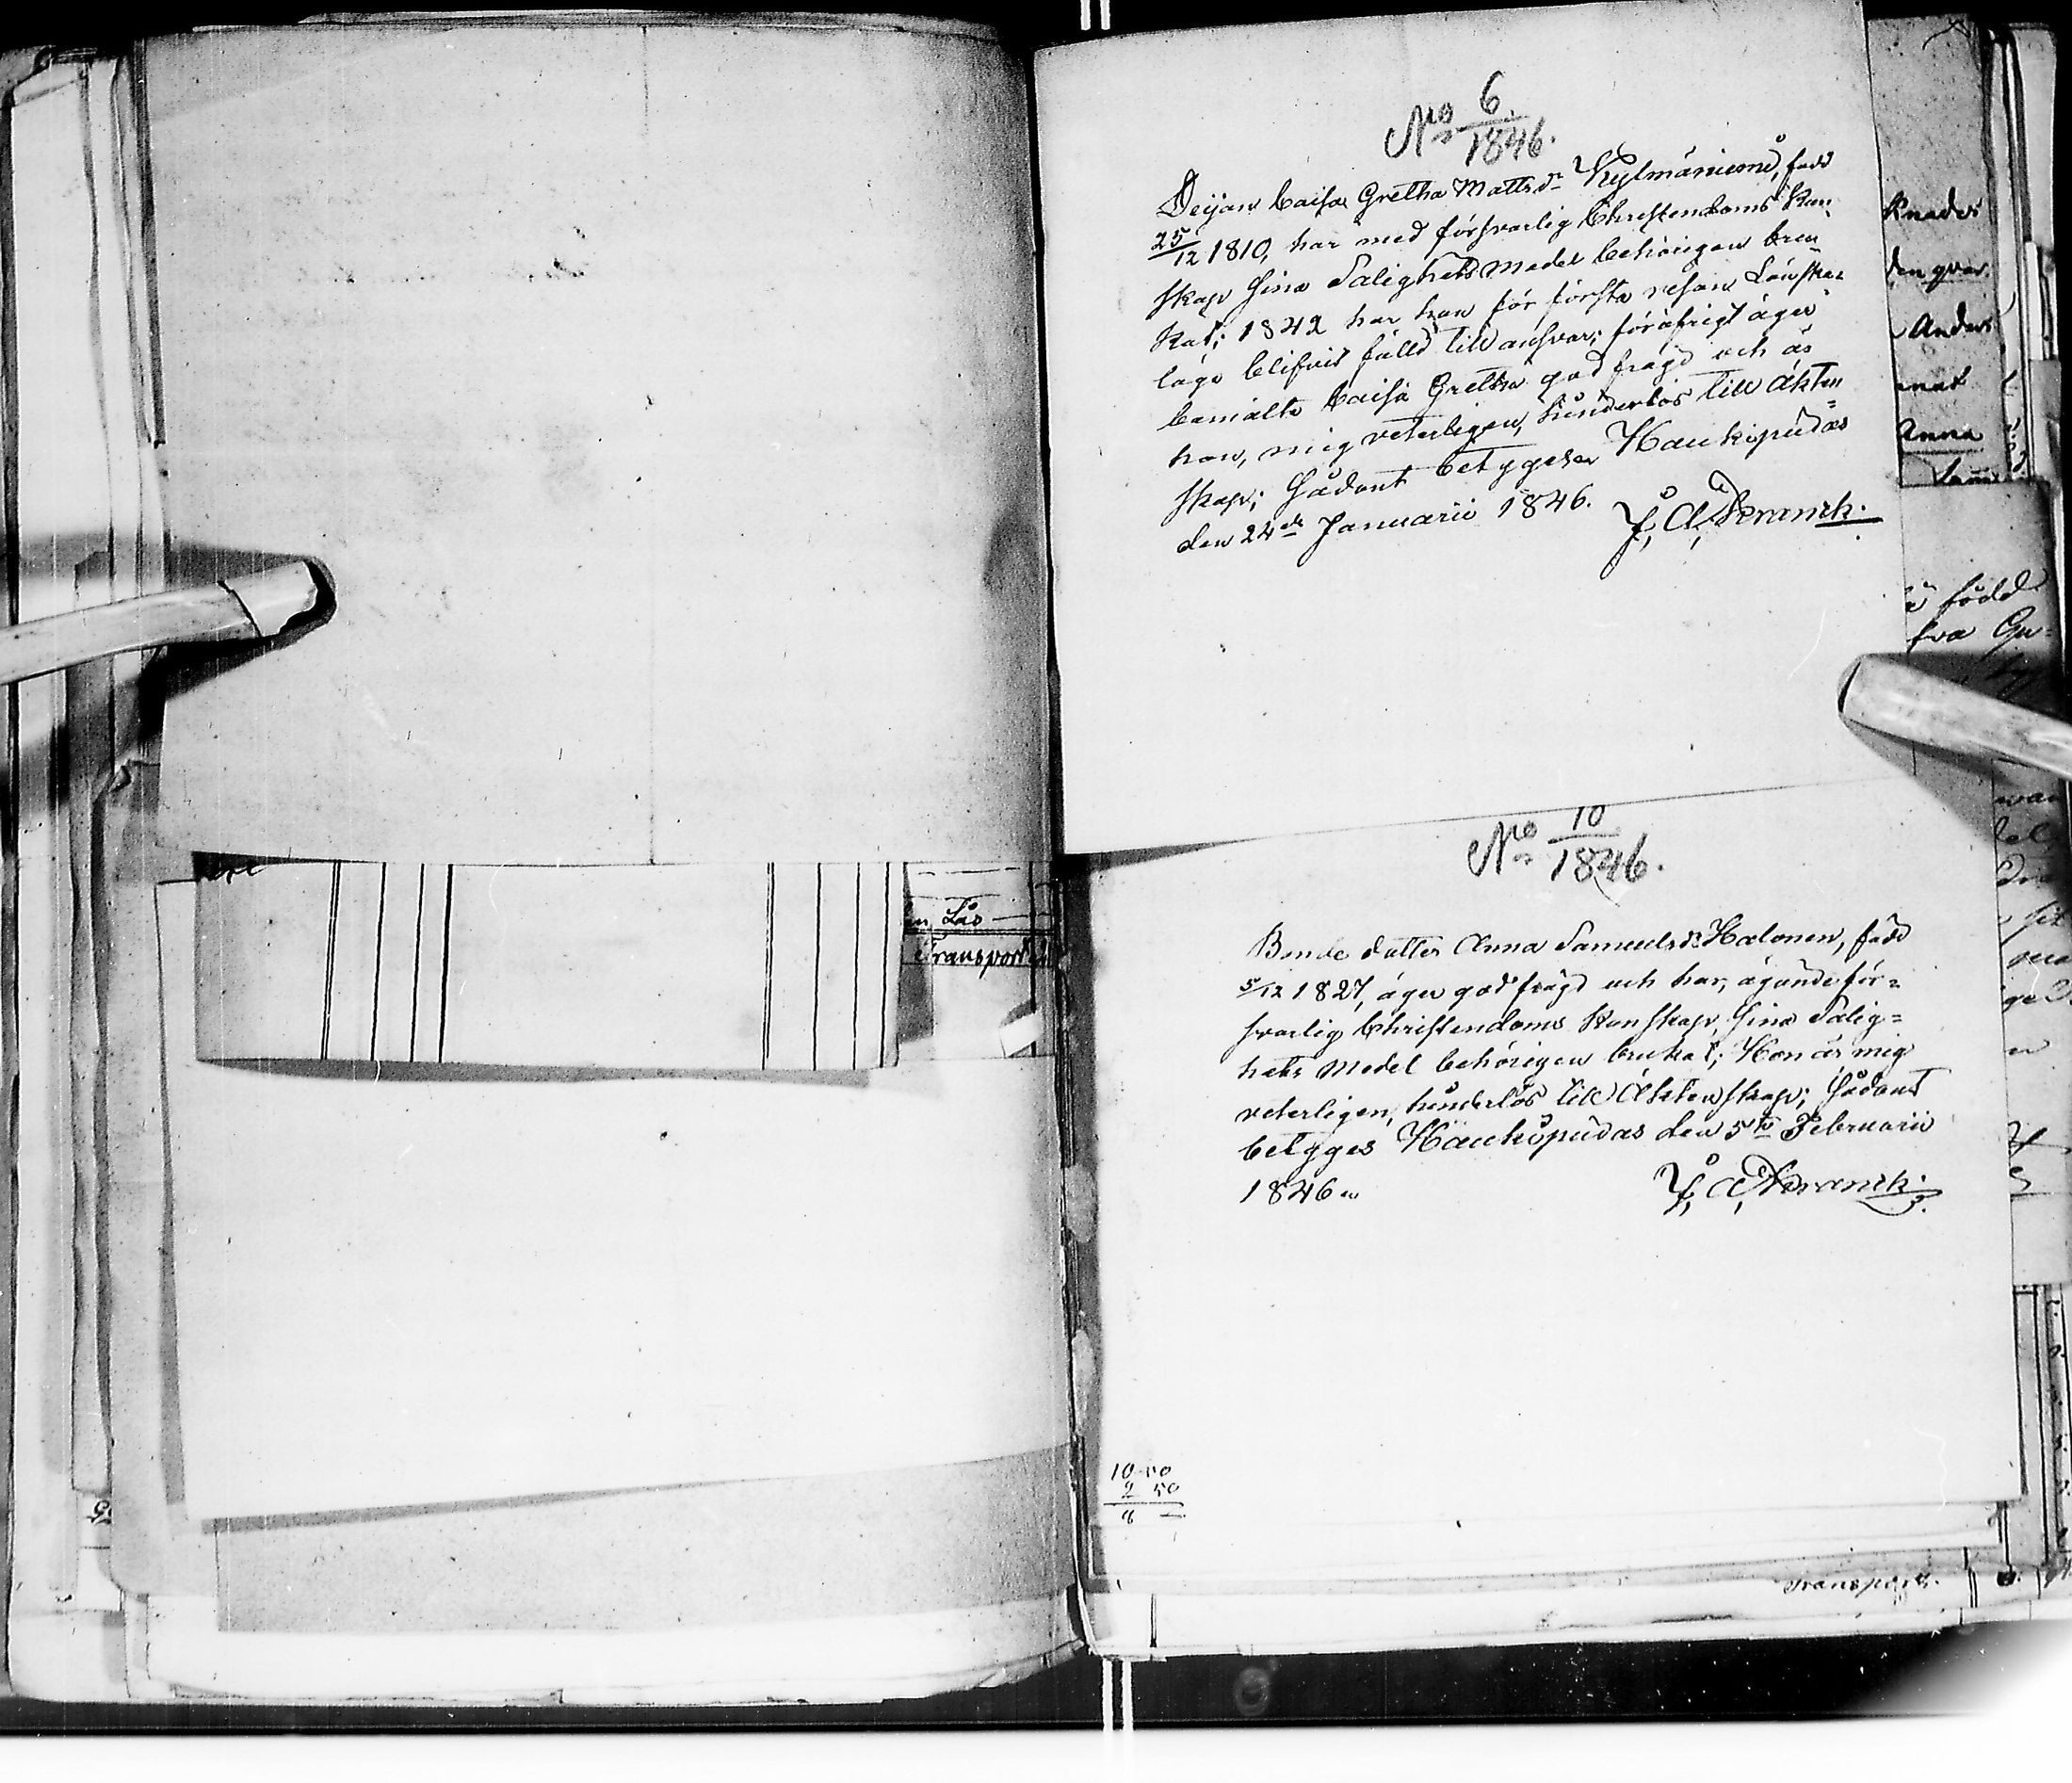 No 6/1846.
Deijan Caisa Gretha Mattsdr Kylmäniemi, född
25/12 1810, har med försvarlig Christendoms Kun¬
skap sina Salighets medel behörigen bru¬
kat; 1842 har hon för första resan Lönska¬
läge blifvit fälld till ansvar; föröfrigt äger
bemälte Caisa Gretha god frägd och är
hon, mig veterligen, hinderlös till äkten=
skap; Sådant betygeser Haukipudas
den 24de Januarii 1846.
J, A, Kranck.
No 10/1846.
Bonde dotter Anna Samuelsdr Halonen, född
5/12 1827, äger god frägd och har, ägande för=
svarlig Christendoms Kunskap, sina Salig=
hets medel behörigen brukat; Hon är mig
veterligen, hinderlös till Äktenskap; Sådant
betyges Haukipudas den 5te Februarii
1846.
J, A, Kranck.
10 50
2 50
8 —
Transport.
Lås
Transport
Knades
den qvar.
Anders
Anna
född
fra Gu=